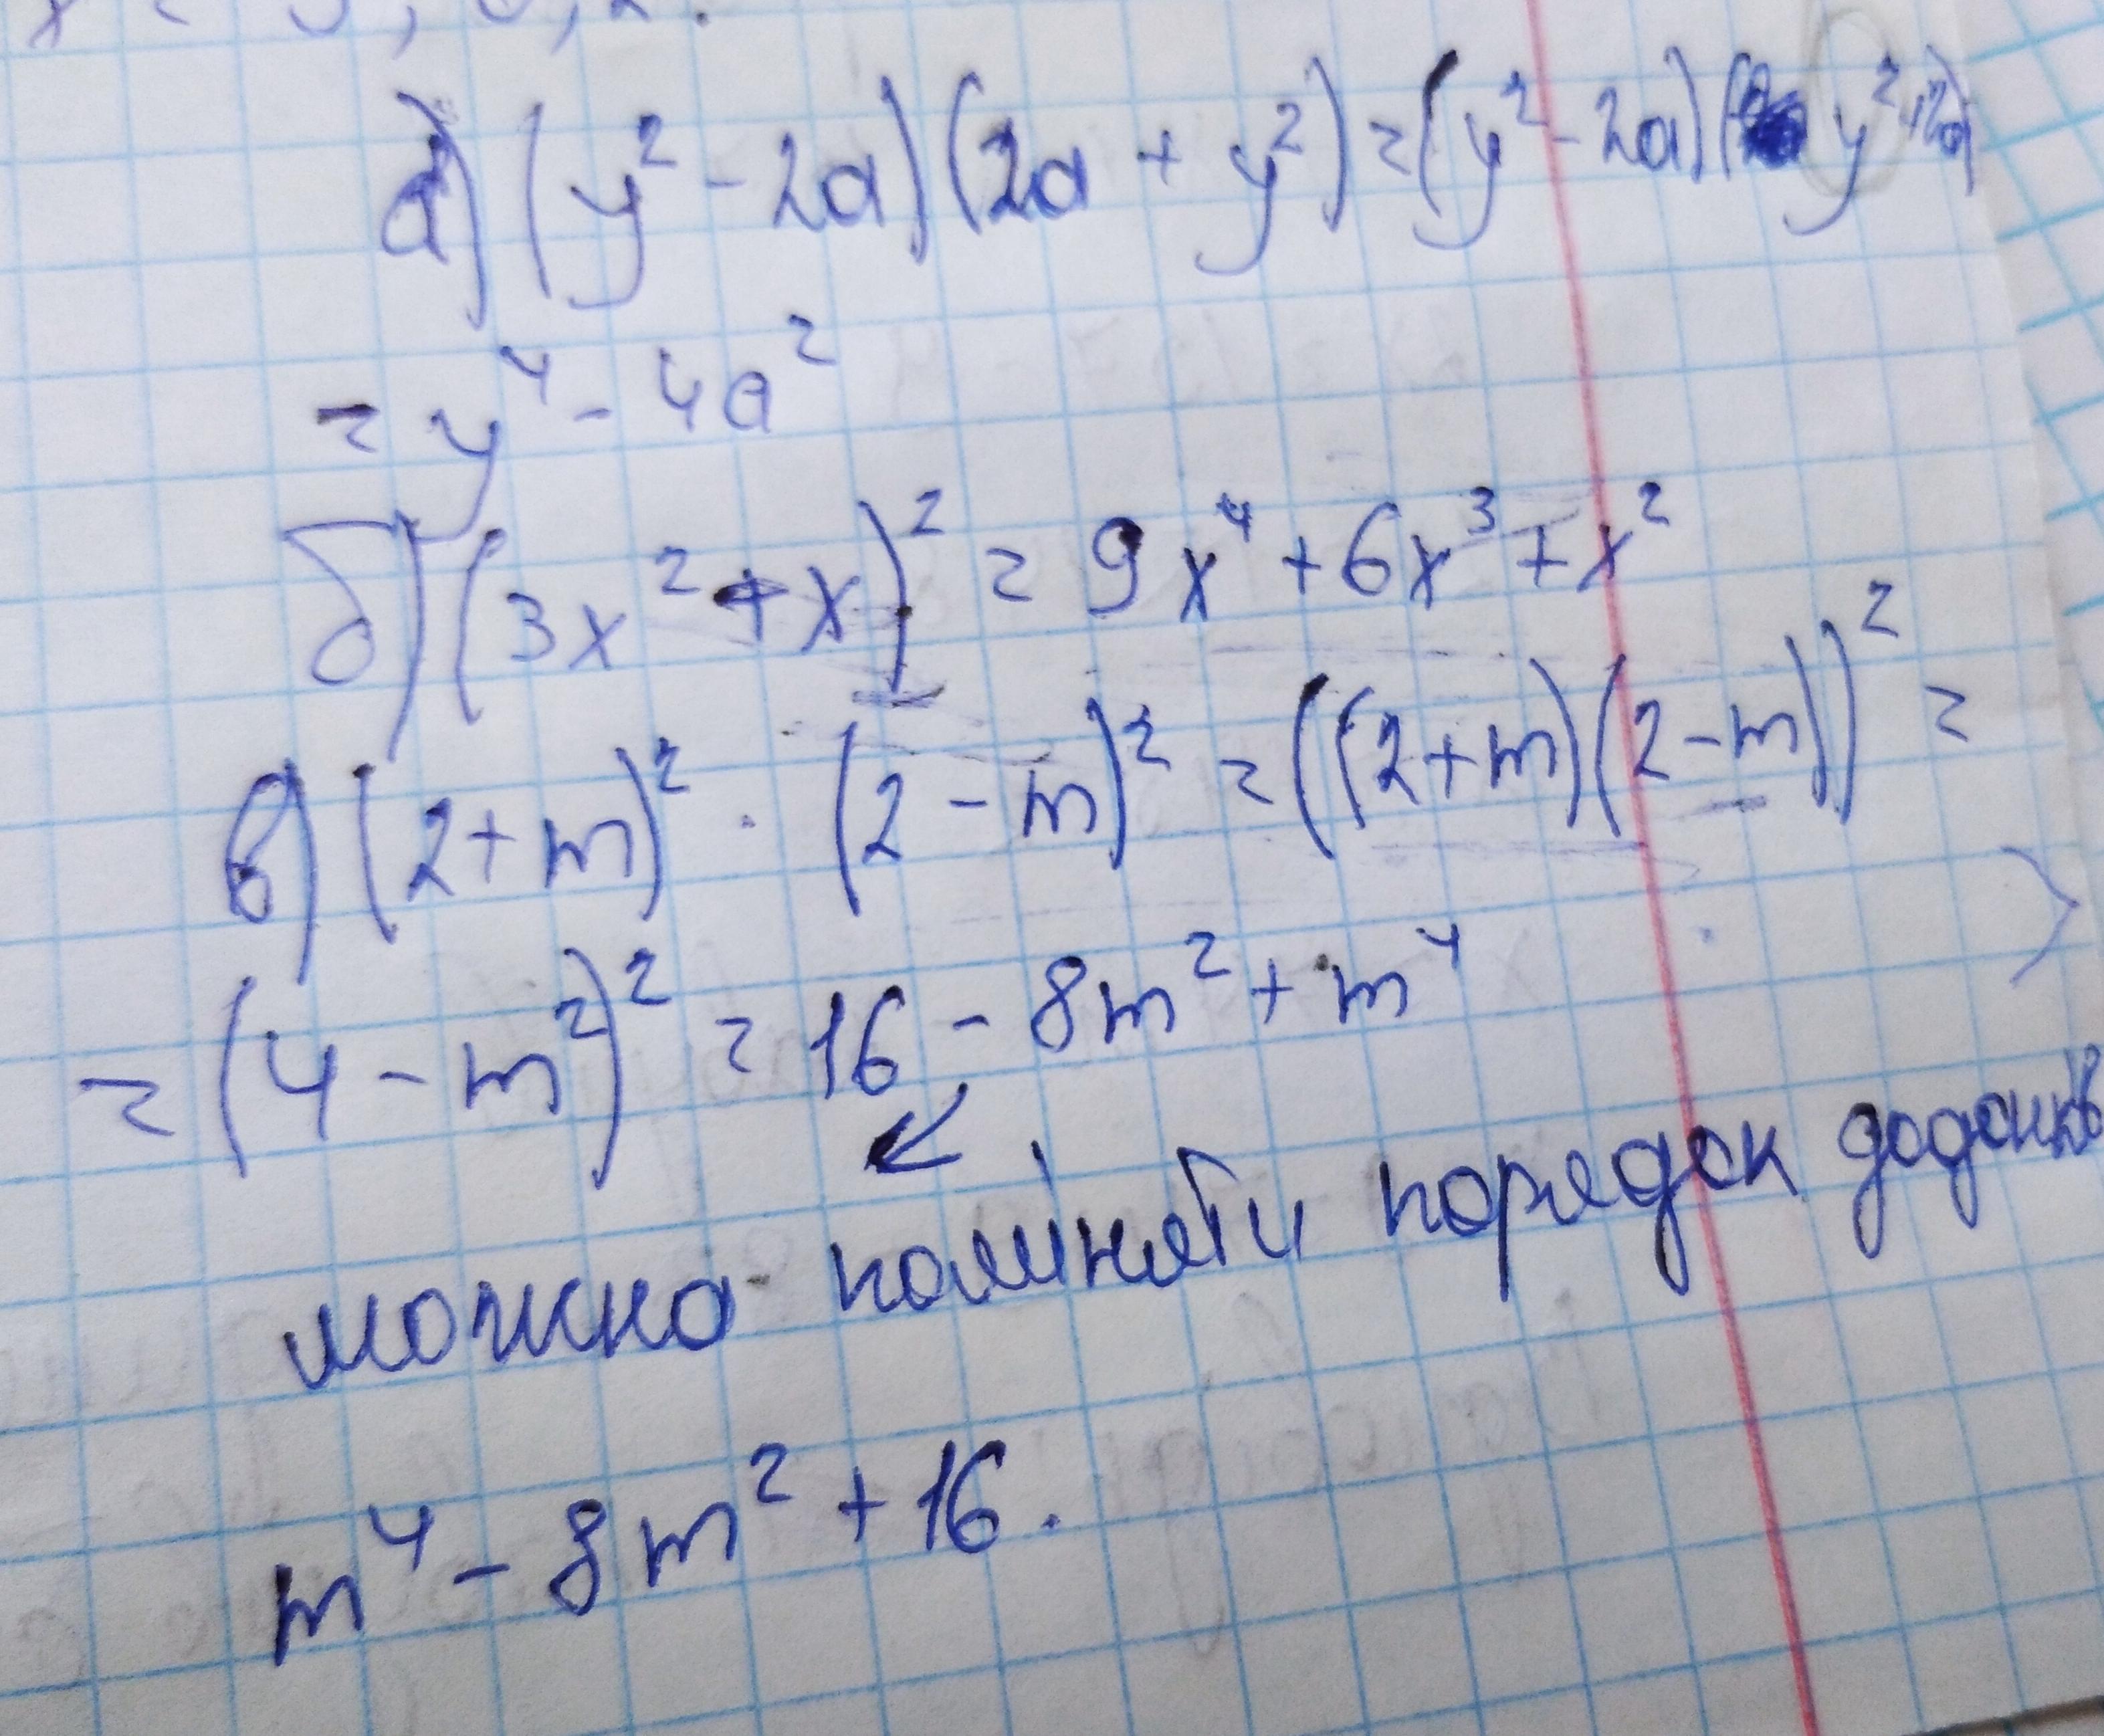 а) (y² - 2a)(2a + y²) = (y² - 2a)(y² + 2a)
= y⁴ - 4a²
б) (3x² + x)² = 9x⁴ + 6x³ + x²
в) (2+m)² · (2 - m)² = ((2+m)(2-m))² =
= (4 - m²)² = 16 - 8m² + m⁴
можна поміняти порядок доданків
m⁴ - 8m² + 16.